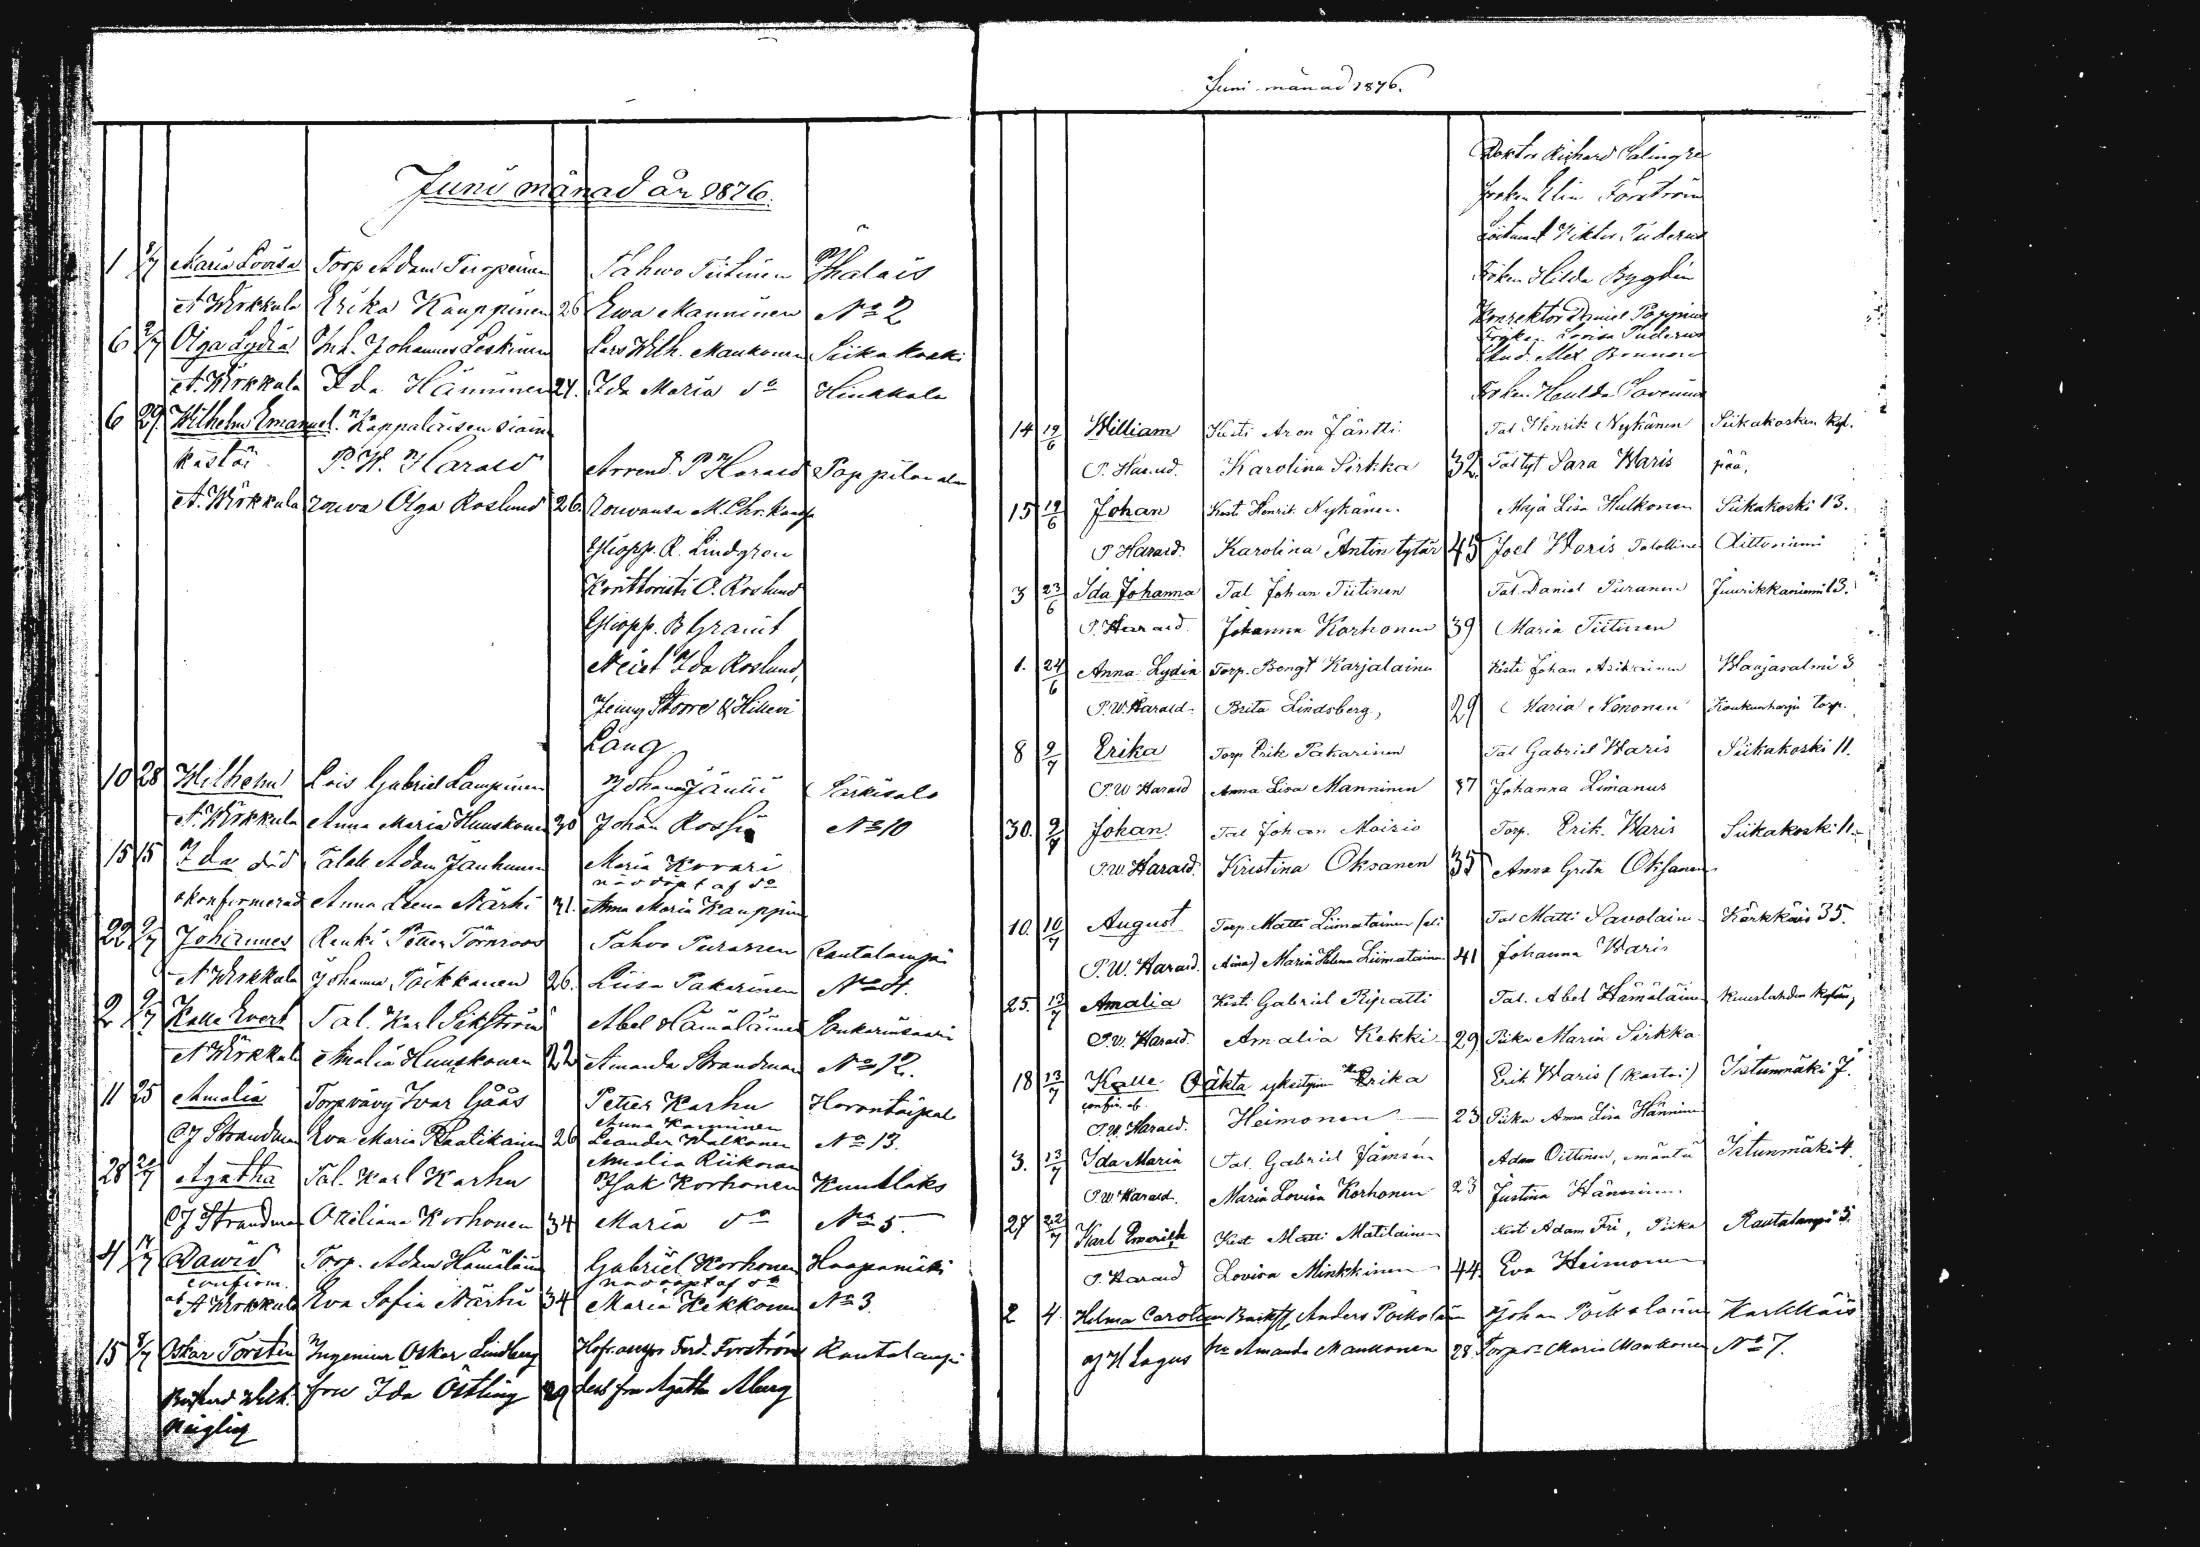 Juni månad år 1876.
1 8/7 Maria Lovisa Torp Adam Turpeinen Pahvo Tiitinen
A Wirkkula Erika Kauppinen 26 Ewa Manninen No 2
6 2/7 Olga Lydia Inh. Johannes Leskinen Lars Wilh. Maukonen Siikakoski
A. Wirkkula Ida Hänninen 24. Ida Maria do Hinkkala
6 29 Wilhelm Emanuel. Kappalaisen siain
kastoi P. W. Harald Arrend. P Harald Pappilan
A. Wirkkula rouva Olga Roslund 26. Rouvansa M. Chr.
Yliopp. R. Lindgren
Konttoristi O. Roslund
Yliopp. B Granit
Neiet Ida Roslund,
Jenny Stoore & Hillevi
Lång
10 28 Wilhelm Lois Gabriel Lampinen Johanna Jäntti Särkisalo
A. Wirkkula Anna Maria Huuskonen 30 Johan Rossi No 10
15 15 Ida död Talall. Adam Jauhiainen Maria Kovari
nöddöpt af do
okonfirmerad Anna Leena Närhi 31. Anna Maria Kauppinen
22 9/7 Johannes Renki Petter Törnroos Pahvo Puranen Rautalampi
A Wirkkula Johanna Pöikkönen 26. Liisa Pakarinen No 4.
2 9/7 Kalle Evert Tal. Karl Sikström Abel Hämäläinen Sonkarinsaari
A Wirkkula Amalia Huuskonen 22 Amanda Strandman No 12.
11 25 Amalia Torpvävy Ivar Gåås Petter Karhu Horontaipal
Anna Karvinen
CJ Strandman Eva Maria Raatikainen 26 Leander Walkonen No 13.
Amalia Riikonen
28 2/7 Agatha Tal. Karl Karhu Isak Korhonen Kuuslaks
CJ Strandman Ottiliana Korhonen 34 Maria do No 5.
4 14/7 Dawid Torp. Adam Hämäläinen Gabriel Korhonen Haapamäki
confirm. nöddöpt af do
af A Wirkkula Eva Sofia Närhi 34 Maria Kekkonen No 3.
15 8/7 Oskar Torsten Ingeniur Oskar Lindberg Ferd. Forström Rautalampi
Wilh. fru Ida Östling 29 dess fru Agatha Alurg
Juni månad 1876.
Doktor Richard Salingre
Fröken Elin Forström
Löitnant Viktor Tuderus
Fröken Hilda Bygdén
Konrektor Daniel Poppius
Fröken Lovisa Tuderus
Stud. Alex. Brunou
Fröken Hulda Savenius
14 19/6 William Kesti Aron Jäntti Tal Henrik Nykänen Siikakosken kyl.
P. Harald. Karolina Sirkka 32. Tal tyt Sara Waris pää,
15 19/6 Johan Kesti Henrik Nykänen Maja Lisa Hulkonen Siikakoski 13.
P Harald. Karolina Antin tytär 45 Joel Waris Talollinen Aittoniemi
3 23/6 Ida Johanna Tal Johan Tiitinen Tal. Daniel Puranen Juurikkaniemi 13.
P. Harald. Johanna Korhonen 39 Maria Tiitinen
1. 24/6 Anna Lydia Torp. Bengt Karjalainen Kesti Johan Asikainen Waajasalmi 3
P. W. Harald. Brita Lindsberg, 29 Maria Nononen Koukunharju torp.
8 9/7 Erika Torp Erik Pakarinen Tal Gabriel Waris Siikakoski 11.
P. W Harald Anna Lisa Manninen 37 Johanna Limanus
30. 9/7 Johan. Tal Johan Moisio Torp. Erik Waris Siikakoski 11.
P. W. Harald. Kristina Oksanen 35 Anna Greta Oksanen
10. 10/7 August Torp. Matti Liimatainen (eli Tal Matti Savolain. Kärkkäis 35.
P. W. Harald. Aina) Maria Helena Liimatainen 41 Johanna Waris
25. 13/7 Amalia Kesti Gabriel Ripatti Tal. Abel Hämäläinen Kuuslahden kylän,
P. W. Harald. Amalia Kekki 29 Piika Maria Sirkka
18 13/7 Kalle Oäkta yksityinen Erika Erik Waris (kastoi) Istunmäki 7.
confir. af.
P. W. Harald. Heimonen 23 Piika Anna Lisa Hänninen
3. 13/7 Ida Maria Tal. Gabriel Jämsén Adam Oittinen, Istunmäki 4.
P. W Harald. Maria Lovisa Korhonen 23 Justina Hänninen
27 22/7 Karl Emerik Kest Matti Matilainen Kest Adam Fri, Piika Rautalampi 3.
P. Harald Lovisa Minkkinen 44. Eva Heimonen
2 4. Hilma Carolina Anders Poikolain Johan Poikolainen Karkkäis
H Lagus hu Amanda Maukonen 28. Maria Maukonen No 7.